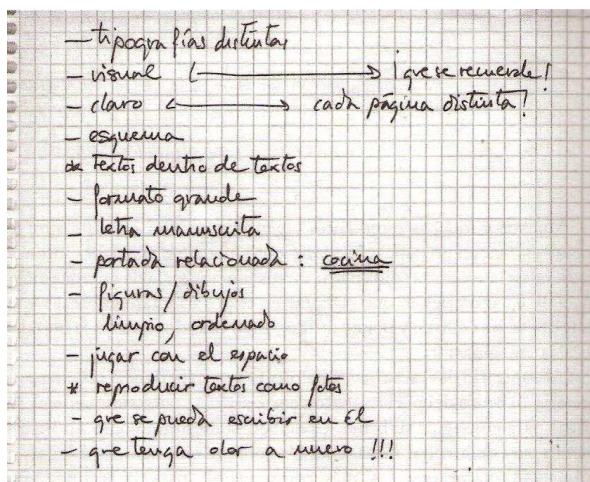 - tipografías distintas
- visual ⟷ ¡que se recuerde!
- claro ⟷ cada página distinta!
- esquema
* textos dentro de textos
- formato grande
- letra manuscrita
- portada relacionada : cocina
- figuras / dibujos
limpio, ordenado
- jugar con el espacio
* reproducir textos como fotos
- que se pueda escribir en él
- que tenga olor a nuevo !!!